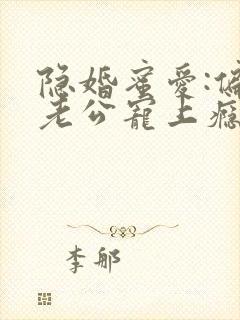 隐婚蜜爱:偏
老公宠上瘾
李郍